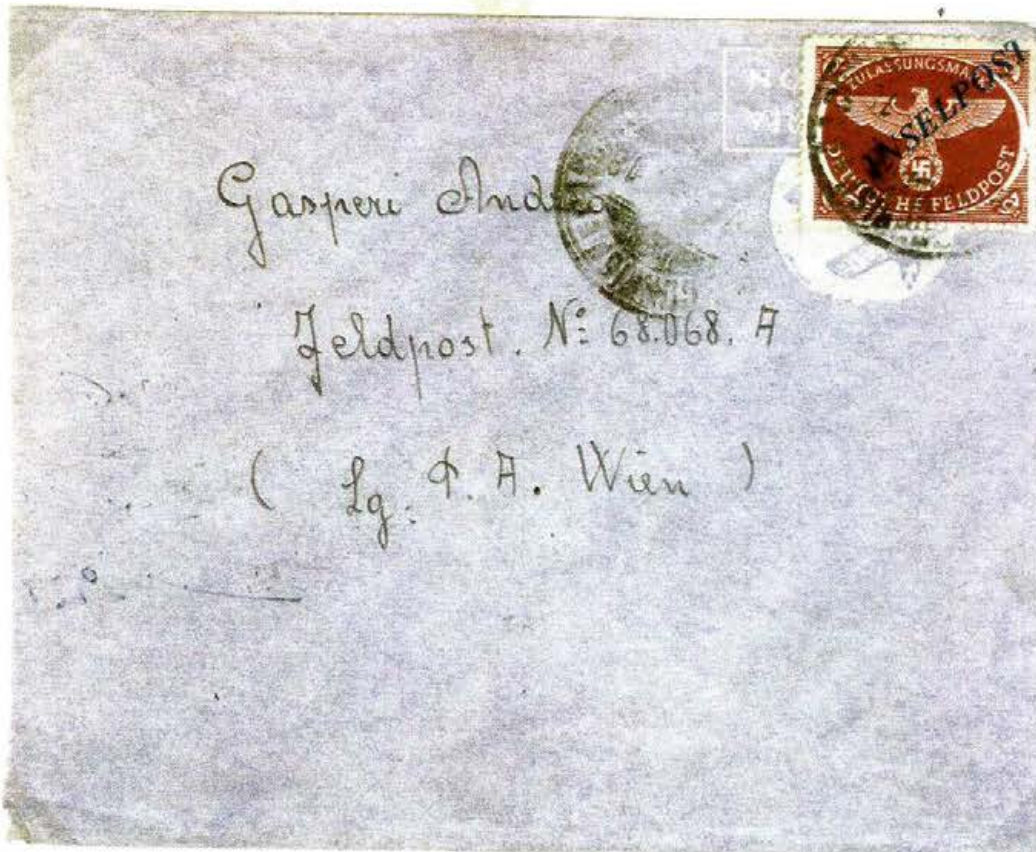 ZULASSUNGSMARKE
INSELPOST
DEUTSCHE FELDPOST
Gasperi Andrea
Feldpost. Nº 68.068. A
( Lg. P. A. Wien )